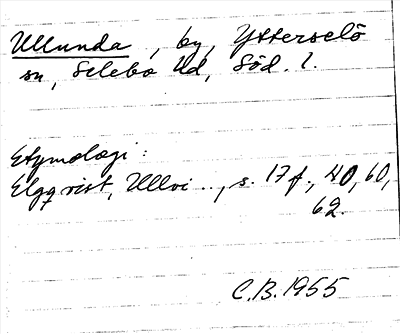 Ullunda, by, Ytterselö
sn, Selebo hd, Söd. l.
Etymologi:
Elgqvist, Ullvi.., s. 17 f., 40, 60,
62.
C.B. 1955